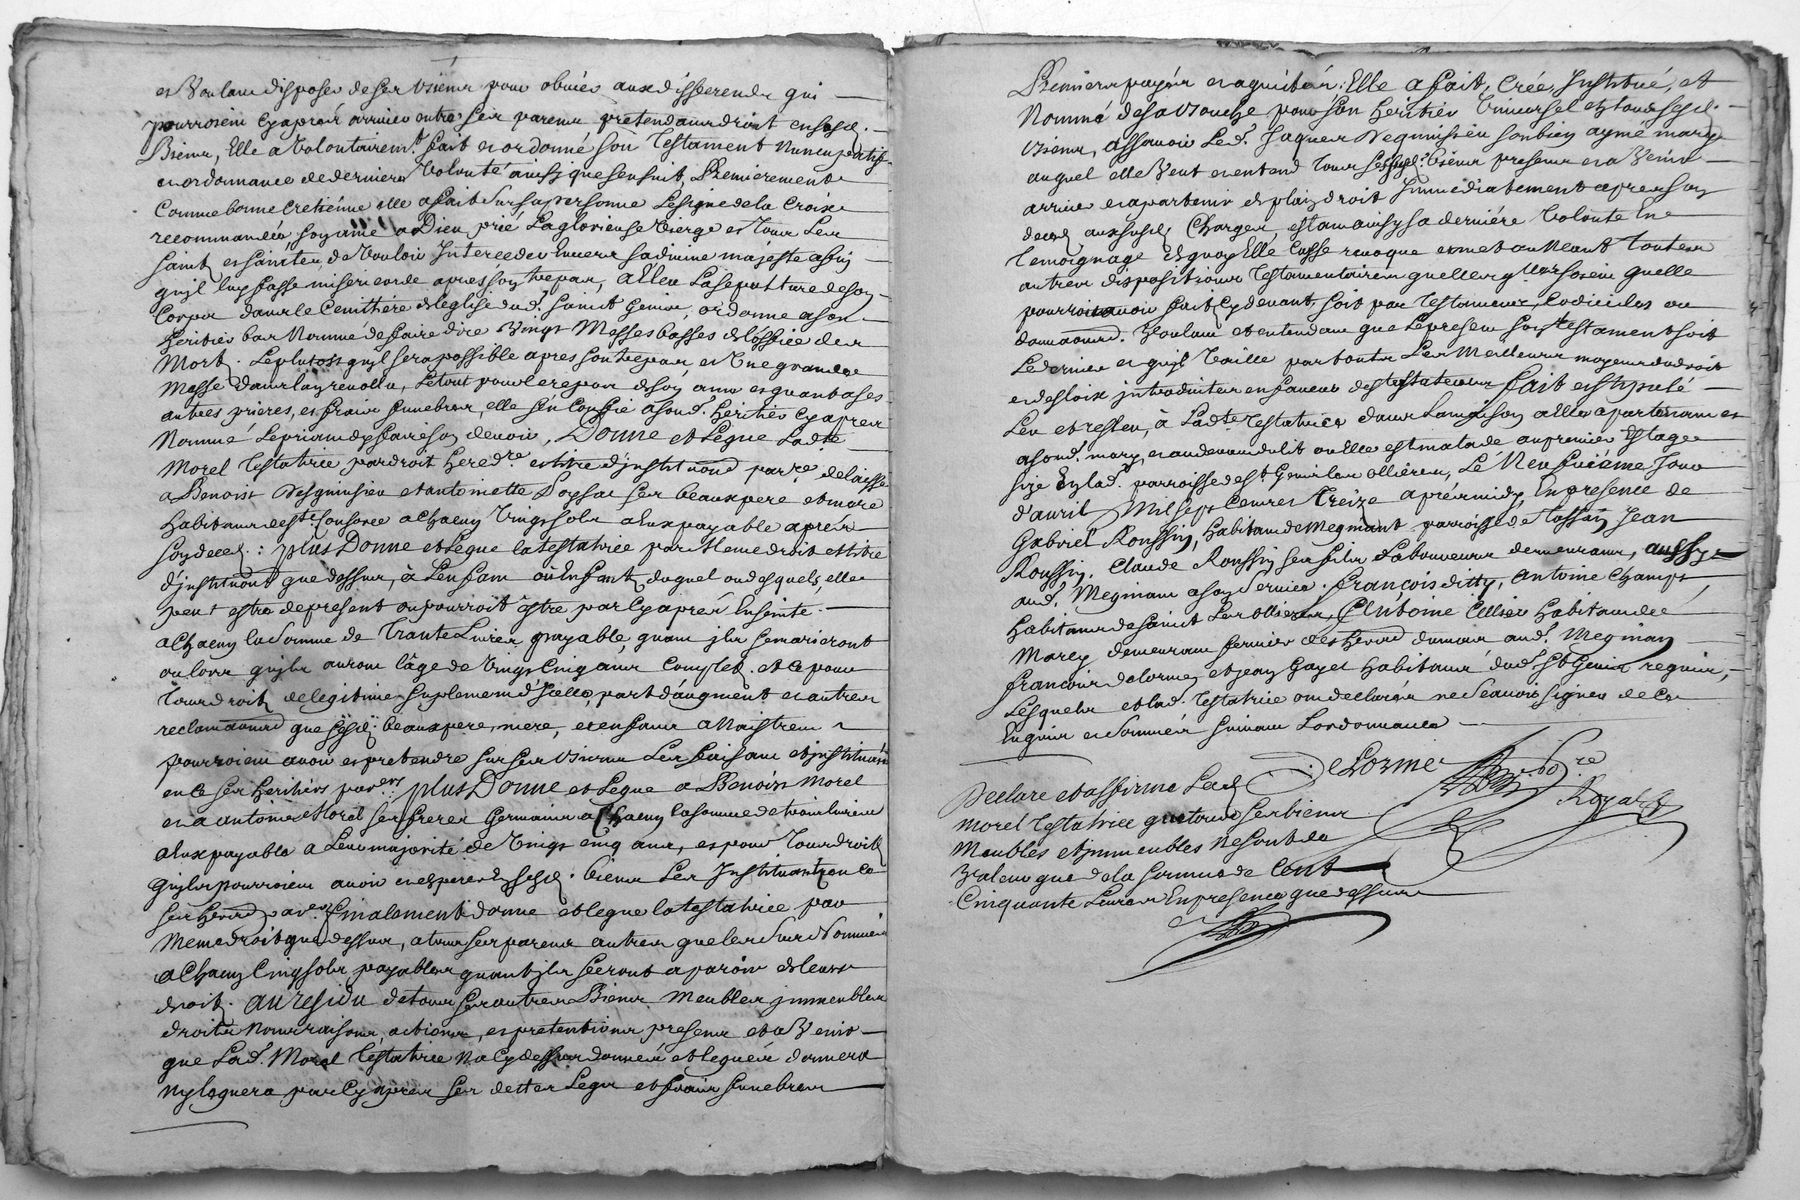 et Voulant disposer de ses biens pour obvier aux differends qui
pourroient cyaprés arriver entre ses parens pretendans droit en sesd.
Biens, Elle a Volontairemt. fait et ordonné son Testament Nuncupatif
et ordonnance de derniere Volonté ainsi que sensuit, Premierement
Comme bonne Cretiénne elle a fait sur sa personne Le signe de la Croix
recommandéé son ame a Dieu, prié La glorieuse Vierge et Tous Les
saints et saintes, de Vouloir Interceder Envers sa divine majesté affin
quil luy fasse misericorde apres son trepas, a Eleu La sepulture de son
Corps dans le Cemittiére de léglise dud. saint Genis, ordonne a son
heritier bas Nommé de faire dire Vingt Messes basses de l'office des
Morts. Le plutost quil sera possible apres son trepas, et Une grande
Messe dans lan revolu, Le tout pour le repos de son ame et quant a ses
autres prieres, et frais funebres, elle sén Confie a sond. heritier Cyapres
Nommé Le priant dy faire son devoir, Donne et Legue Ladte
Morel Testatrice par droit hered.re et titre d'institution par.re delaisse
a Benoist et antoinette ses beaux pere et mere
habitans de a Chacun Vingt sols a Eux payable aprés
son deced. : plus Donne et Legue la testatrice par Meme droit et titre
d'institution que dessus, à Lenfant où Enfants duquel ou desquels, elle
peut estre de present ou pourroit éstre par Cyaprés Enseinte
a Chacun la somme de Trante Livres payable, quant ils se marieront
ou lors quils auront l'âge de Vingt Cinq ans Complets. et Ce pour
Tous droits de legitime suplement d'Icelle, part d'augment et autres
reclamations que sesd. beaux pere, mere, et enfans a Naistre
pourroient avoir et pretendre sur ses biens Les faisant et instituant
en Ce ses heritiers par.ers plus Donne et Legue a Benoist Morel
et a antoine Morel ses freres Germains a Chacun la somme de trois livres
a Eux payable a Leur majorité de Vingt cinq ans, et pour Tous droits
quils pourroient avoir et esperer d sesd. biens Les Instituant en Ce
ses heritiers par.ers finalement donne et legue la testatrice par
Meme droit que dessus, a tous ses parens autres que les sus Nommés
a Chacun Cinq sols payables quant ils feront a paroir de leurs
droits. au residu de tous ses autres Biens Meubles immeubles
droits Noms raisons, actions, et pretentions presens et a Venir
que Lad. Morel Testatrice Na Cy dessus donnéé et leguéé donnera
Ny leguera par Cy apres ses dettes Legs et frais funebres
Premiers payés et aquités: Elle a fait, Créé, Institué, et
Nommé de sa bouche pour son heritier Universel et tous sesd.
biens, assavoir Led. Jaques son bien aymé mary
auquel elle Veut et entend Tous sesd. biens presens et a Venir
arriver et apartenir de plain droit Immediatement apres son
deced aux susd. Charges, et tam ainsy sa derniére Volonte En
Temoignage de quoy Elle Casse revoque et met au Neant Toutes
autres dispositions Testamentaires quelles quelles soient quelle
pourroit avoir fait Cy devant, soit par Testament, Codicilles ou
donnaons. Voulant et entendant que Le present son testament soit
Le dernier et quil Vaille par toutes Les Meilleurs moyens du droit
et des loix introduites en faveur des testateurs fait et stipulé
Leu et releu, à Ladte Testatrice dans La maison a Elles apartenant et
a sond. mary, et audevant du lit ou Elle est malade au premier Estage
size En lad. parroisse de St Genis les ollieres, Le Neufviéme Jour
d'avril Mil sept Cent Treize aprésmidy, En presence de
Gabriel Roussin, habitant de Megniant parroisse de Tassin Jean
Roussin, Claude Roussin ses fils Laboureurs demeurans, aussy
aud. Megniant a son service. françois ditty, antoine Champt
habitans de saint Les ollieres, Antoine Cellier habitant de
Marcy demeurant fermier des demeurant aud. Megniant
françois delorme, et Jean Gayet habitans dud. St Genis requis,
Lesquels et lad. Testatrice ont declarés ne scavoir signer de Ce
Enquis et sommés suivant Lordonnance
Declare et affirme Lad.
Morel Testatrice que tous ses biens
Meubles et immeubles Ne sont de
Valeur que de la somme de Cent
Cinquante Livres En presence que dessus
DeLorme
Nore
Royal